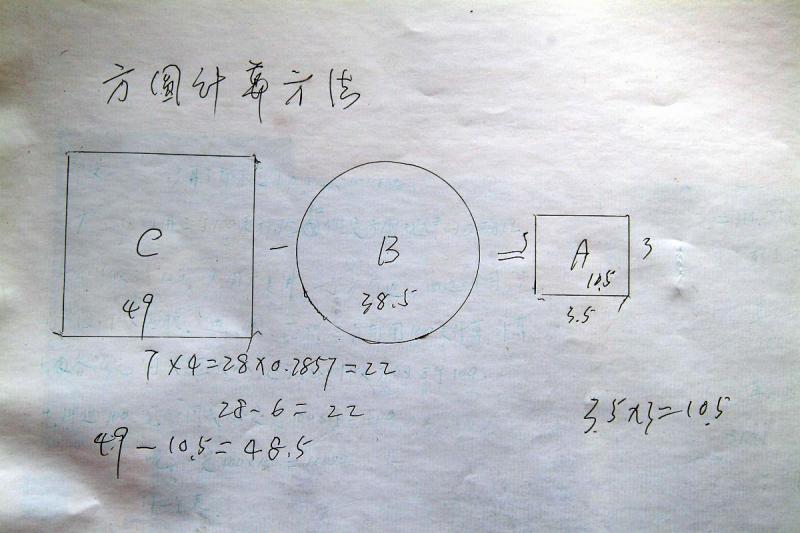 方圆计算方法
C - B = A
49 38.5 10.5 3
3.5
7×4=28×0.2857=22
28-6=22
3.5×3=10.5
49-10.5=48.5